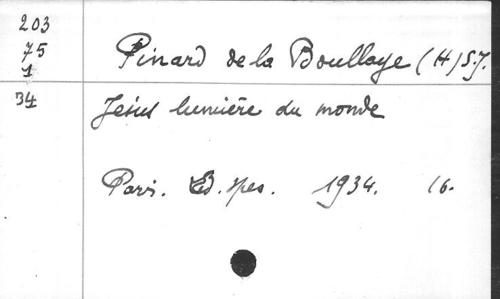 203
75
1
Pinard de la Boullaye (H) S.J.
34
Jésus lumière du monde
Paris. Ed. Spes. 1934. 16.